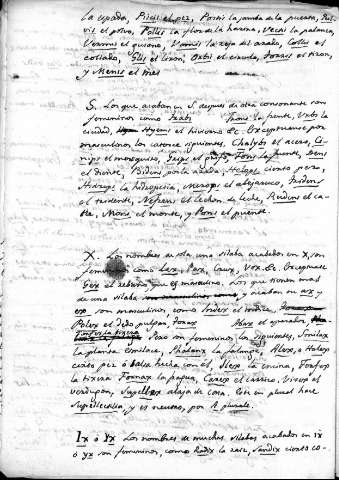 la espada, Piscis el pez, Postis la jamba de la puerta, Pul-
vis el polvo, Pollis la flor de la harina, Vectis la palanca,
Vermis el gusano, Vomis la reja del arado, Collis el
collado, Glis el liron, Orbis el circulo, Torris el tizon,
y Mensis el mes
S. Los que acaban en S despues de otra consonante son
femeninos como Trabs Frons la frente, Urbs la
ciudad, Hyems el hivierno &c. Exceptuanse por
masculinos los catorce siguientes, Chalybs el acero, Ci-
nips el mosquito, Gryps el grifo, Fons la fuente, Dens
el diente, Bidens por la azada, Helops cierto pez,
Hidrops la hidropesia, Merops el abejaruco, Tridens
el tridente, Nefrens el lechon de leche, Rudens el ca-
ble, Mons el monte, y Pons el puente.
X. Los nombres de sola una silaba acabados en X, son
femeninos como Lex, Pax, Crux, Vox, &c. Exceptuase
Grex el rebaño que es masculino. Los que tienen mas
de una silaba y acaban en ax, y
ex son masculinos, como Index el indice,
Pollex el dedo pulgar, Torax Abax el aparador,
Pero son femeninos los siguientes, Smilax
la planta Smilace, Phalanx la falange, Alex, o Halex
cierto pez ó salsa hecha con el, Ilex la encina, Forfex
la tixera Fornax la fragua, Carex el carrizo, Vibex el
verdugon, Supellex alaja de casa. Este en plural hace
Supellectilia, y es neutro, por A plurale.
Ix ó Yx Los nombres de muchas silabas acabados en ix
ó yx son femeninos, como Radix la raiz, Sandix cierto co-